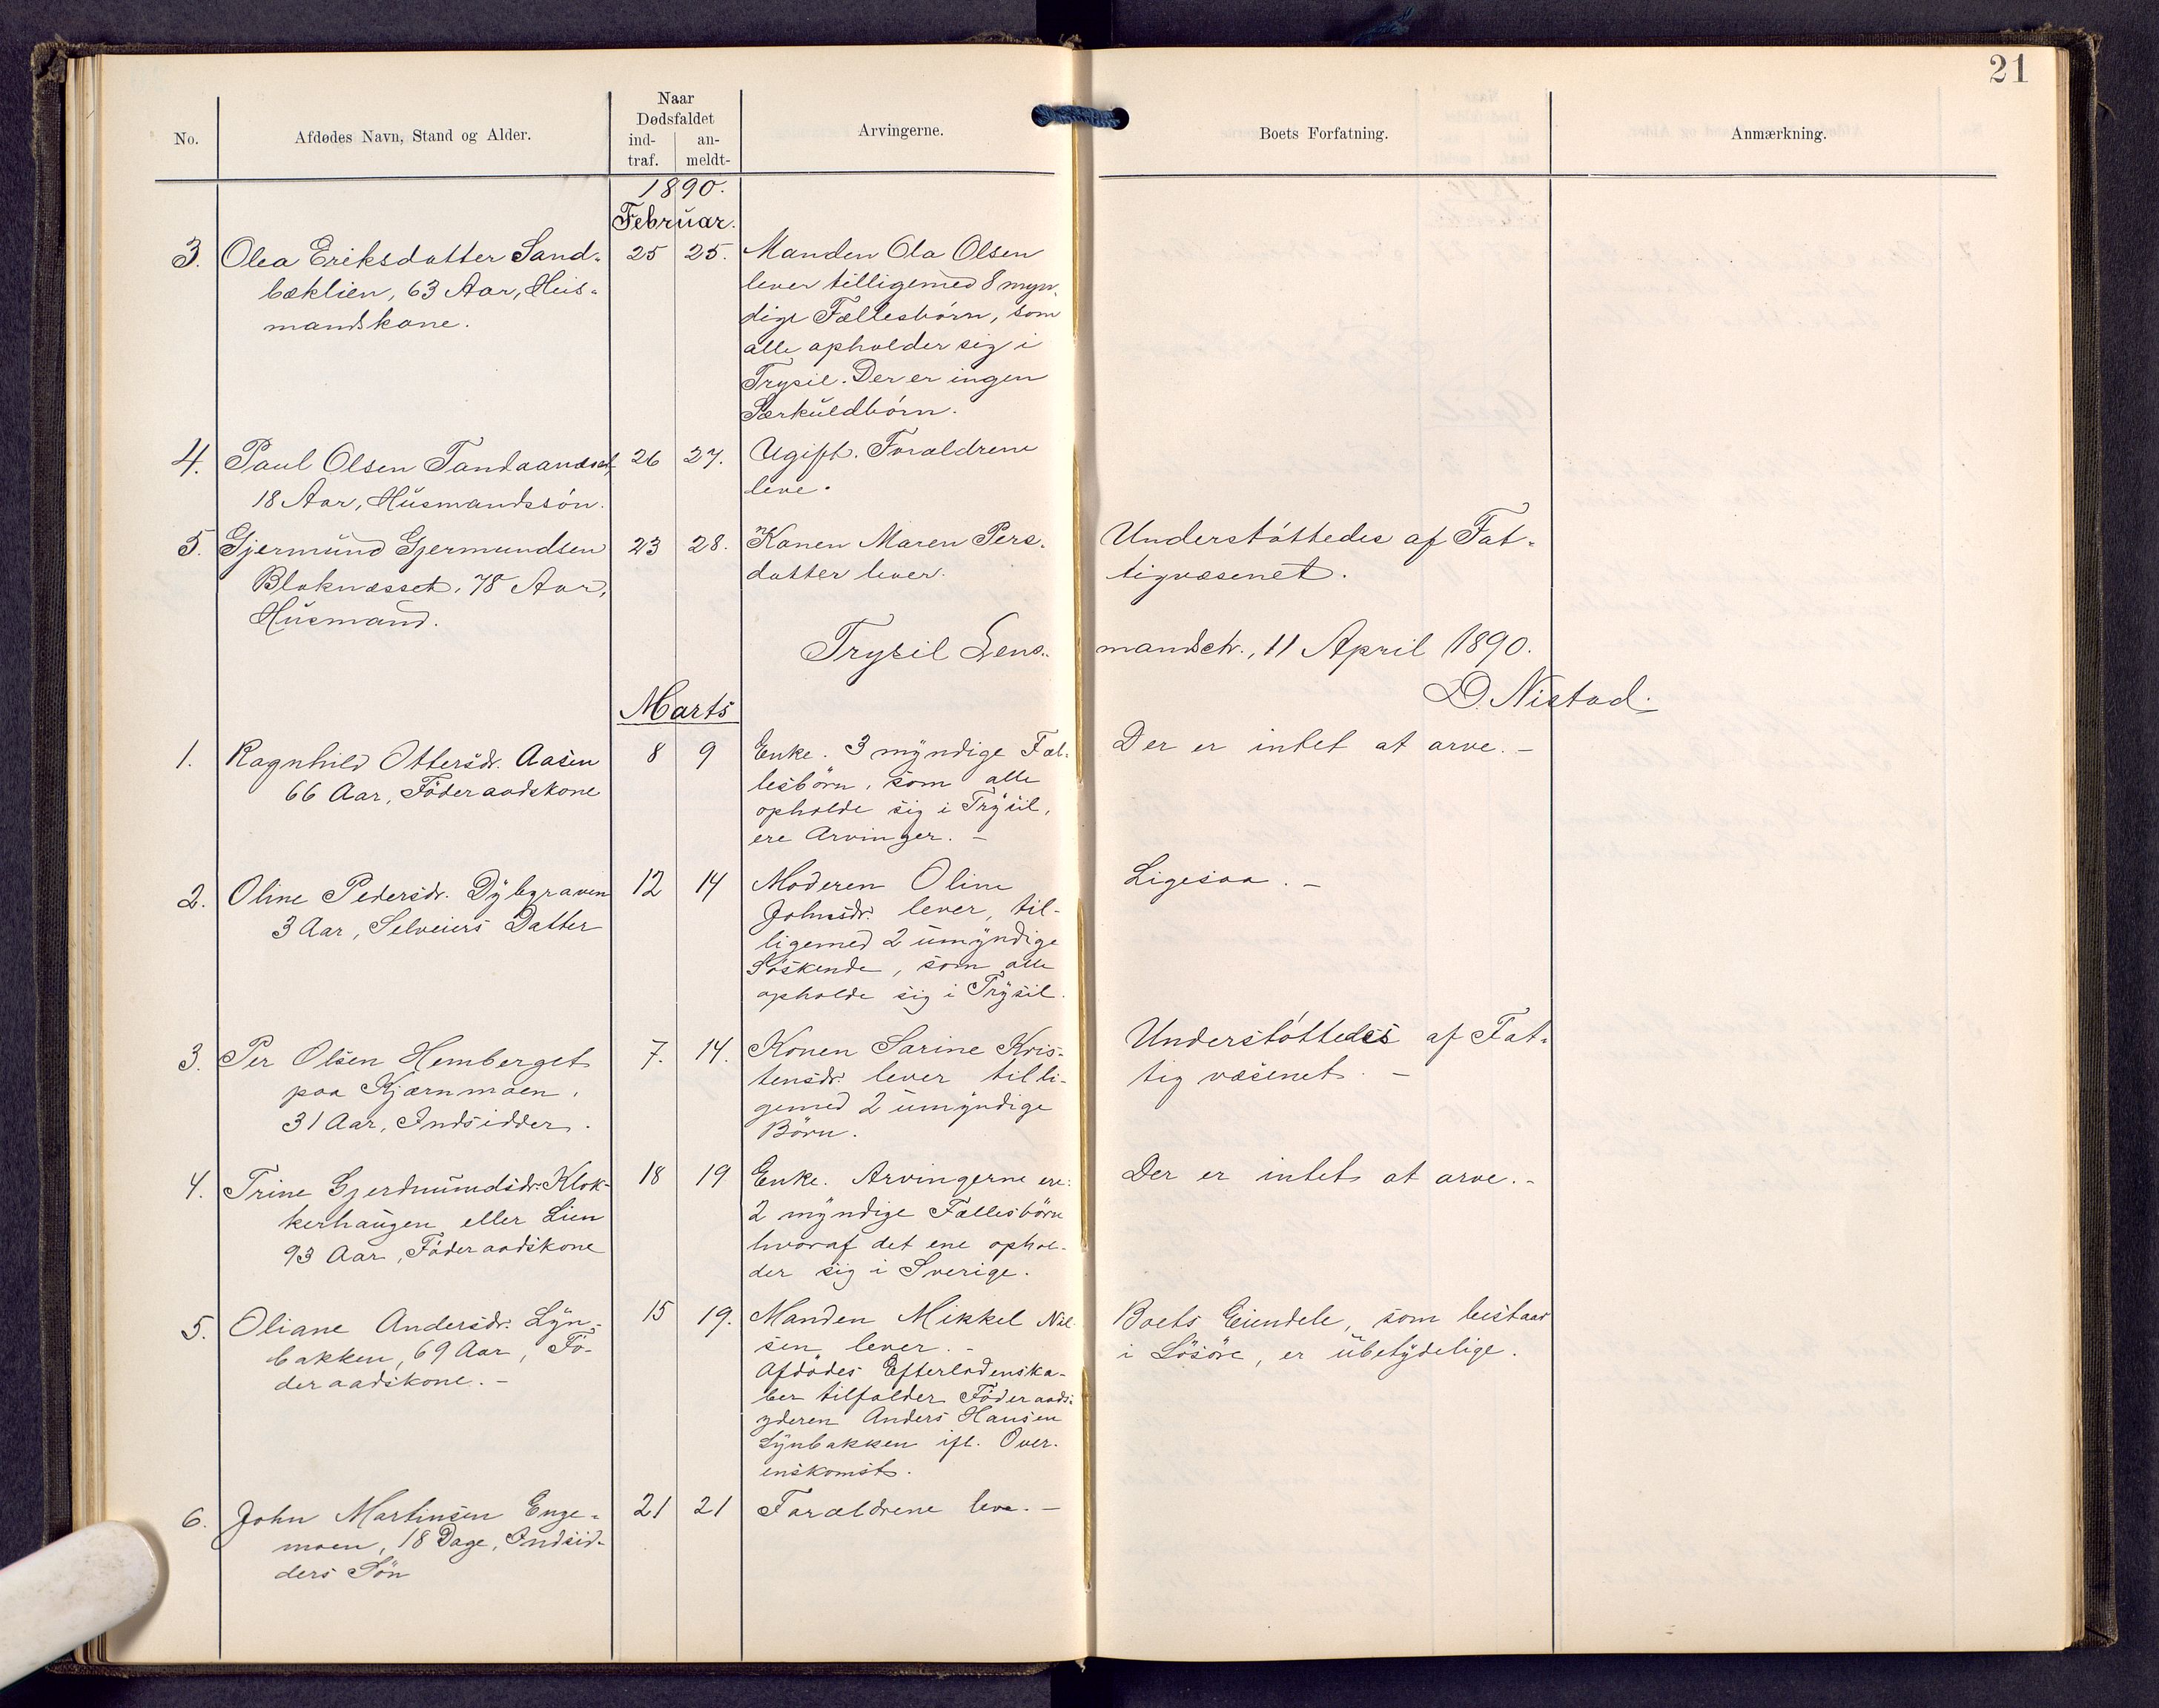 21
No.
Afdødes Navn, Stand og Alder.
Naar
Dødsfaldet
ind-
traf.
an-
meldt-
Arvingerne.
Boets Forfatning.
Anmærkning.
1890.
Februar.
3. Olea Eriksdatter Sand-
bæklien, 63 Aar, Hus-
mandskone.
25 25.
Manden Ola Olsen
lever tilligemed 8 myn-
dige Fællesbörn, som
alle opholder sig i
Trysil. Der er ingen
Særkuldbörn.
4. Paul Olsen Tandaanæset
18 Aar, Husmandssön.
26 27.
Ugift. Forældrene
leve.
5. Gjermund Gjermundsen
Bloknæsset, 78 Aar,
Husmand.
23 28.
Konen Maren Pers-
datter lever.
Understöttedes af Fat-
tigvæsenet.
Trysil Lens-
mandstr., 11 April 1890.
D. Nistad.
Marts
1. Ragnhild Ottersdr. Aasen
66 Aar, Föderaadskone
8 9
Enke. 3 myndige Fæl-
lesbörn, som alle
opholde sig i Trysil,
ere Arvinger. —
Der er intet at arve. —
2. Oline Pedersdr. Dybgraven
3 Aar, Selveiers Datter
12 14
Moderen Oline
Johnsdr. lever, til-
ligemed 2 umyndige
Söskende, som alle
opholde sig i Trysil.
Ligesaa. —
3. Per Olsen Hemberget
paa Kjærnmoen,
31 Aar, Indsidder.
7. 14.
Konen Sarine Kris-
tensdr. lever tilli-
gemed 2 umyndige
Börn.
Understöttedes af Fat-
tigvæsenet. —
4. Trine Gjerdmundsdr. Klok-
kerhaugen eller Lien
93 Aar, Föderaadskone
18 19
Enke. Arvingerne ere:
2 myndige Fællesbörn
hvoraf det ene ophol-
der sig i Sverige.
Der er intet at arve. -
5. Oliane Andersdr. Lyn-
bakken, 69 Aar, Fö-
deraadskone. —
15 19.
Manden Mikkel Nil-
sen lever. —
Afdödes Efterladenska-
ber tilfalder Föderaads-
yderen Anders Hansen
Lynbakken ifl. Over-
enskomst.
Boets Eiendele, som bestaar
i Lösöre, er ubetydelige.
6. John Martinsen Enge-
moen, 18 Dage, Indsid-
ders Sön
21 21
Forældrene leve. —